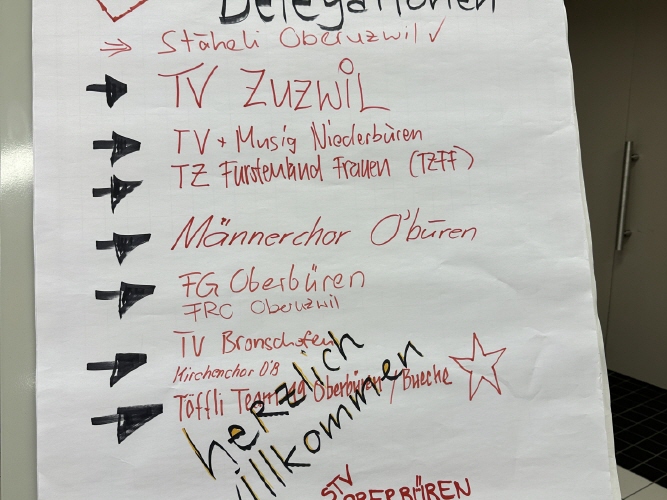 Delegationen
Stäheli Oberuzwil ✓
TV ZUZWIL
TV + Musig Niederbüren
TZ Fürstenland Frauen (TZFF)
Männerchor O'büren
FG Oberbüren
FRC Oberuzwil
TV Bronschofen
Kirchenchor O'B
Töffli Team Oberbüren / Buecke
herzlich
willkommen
STV
OBERBÜREN